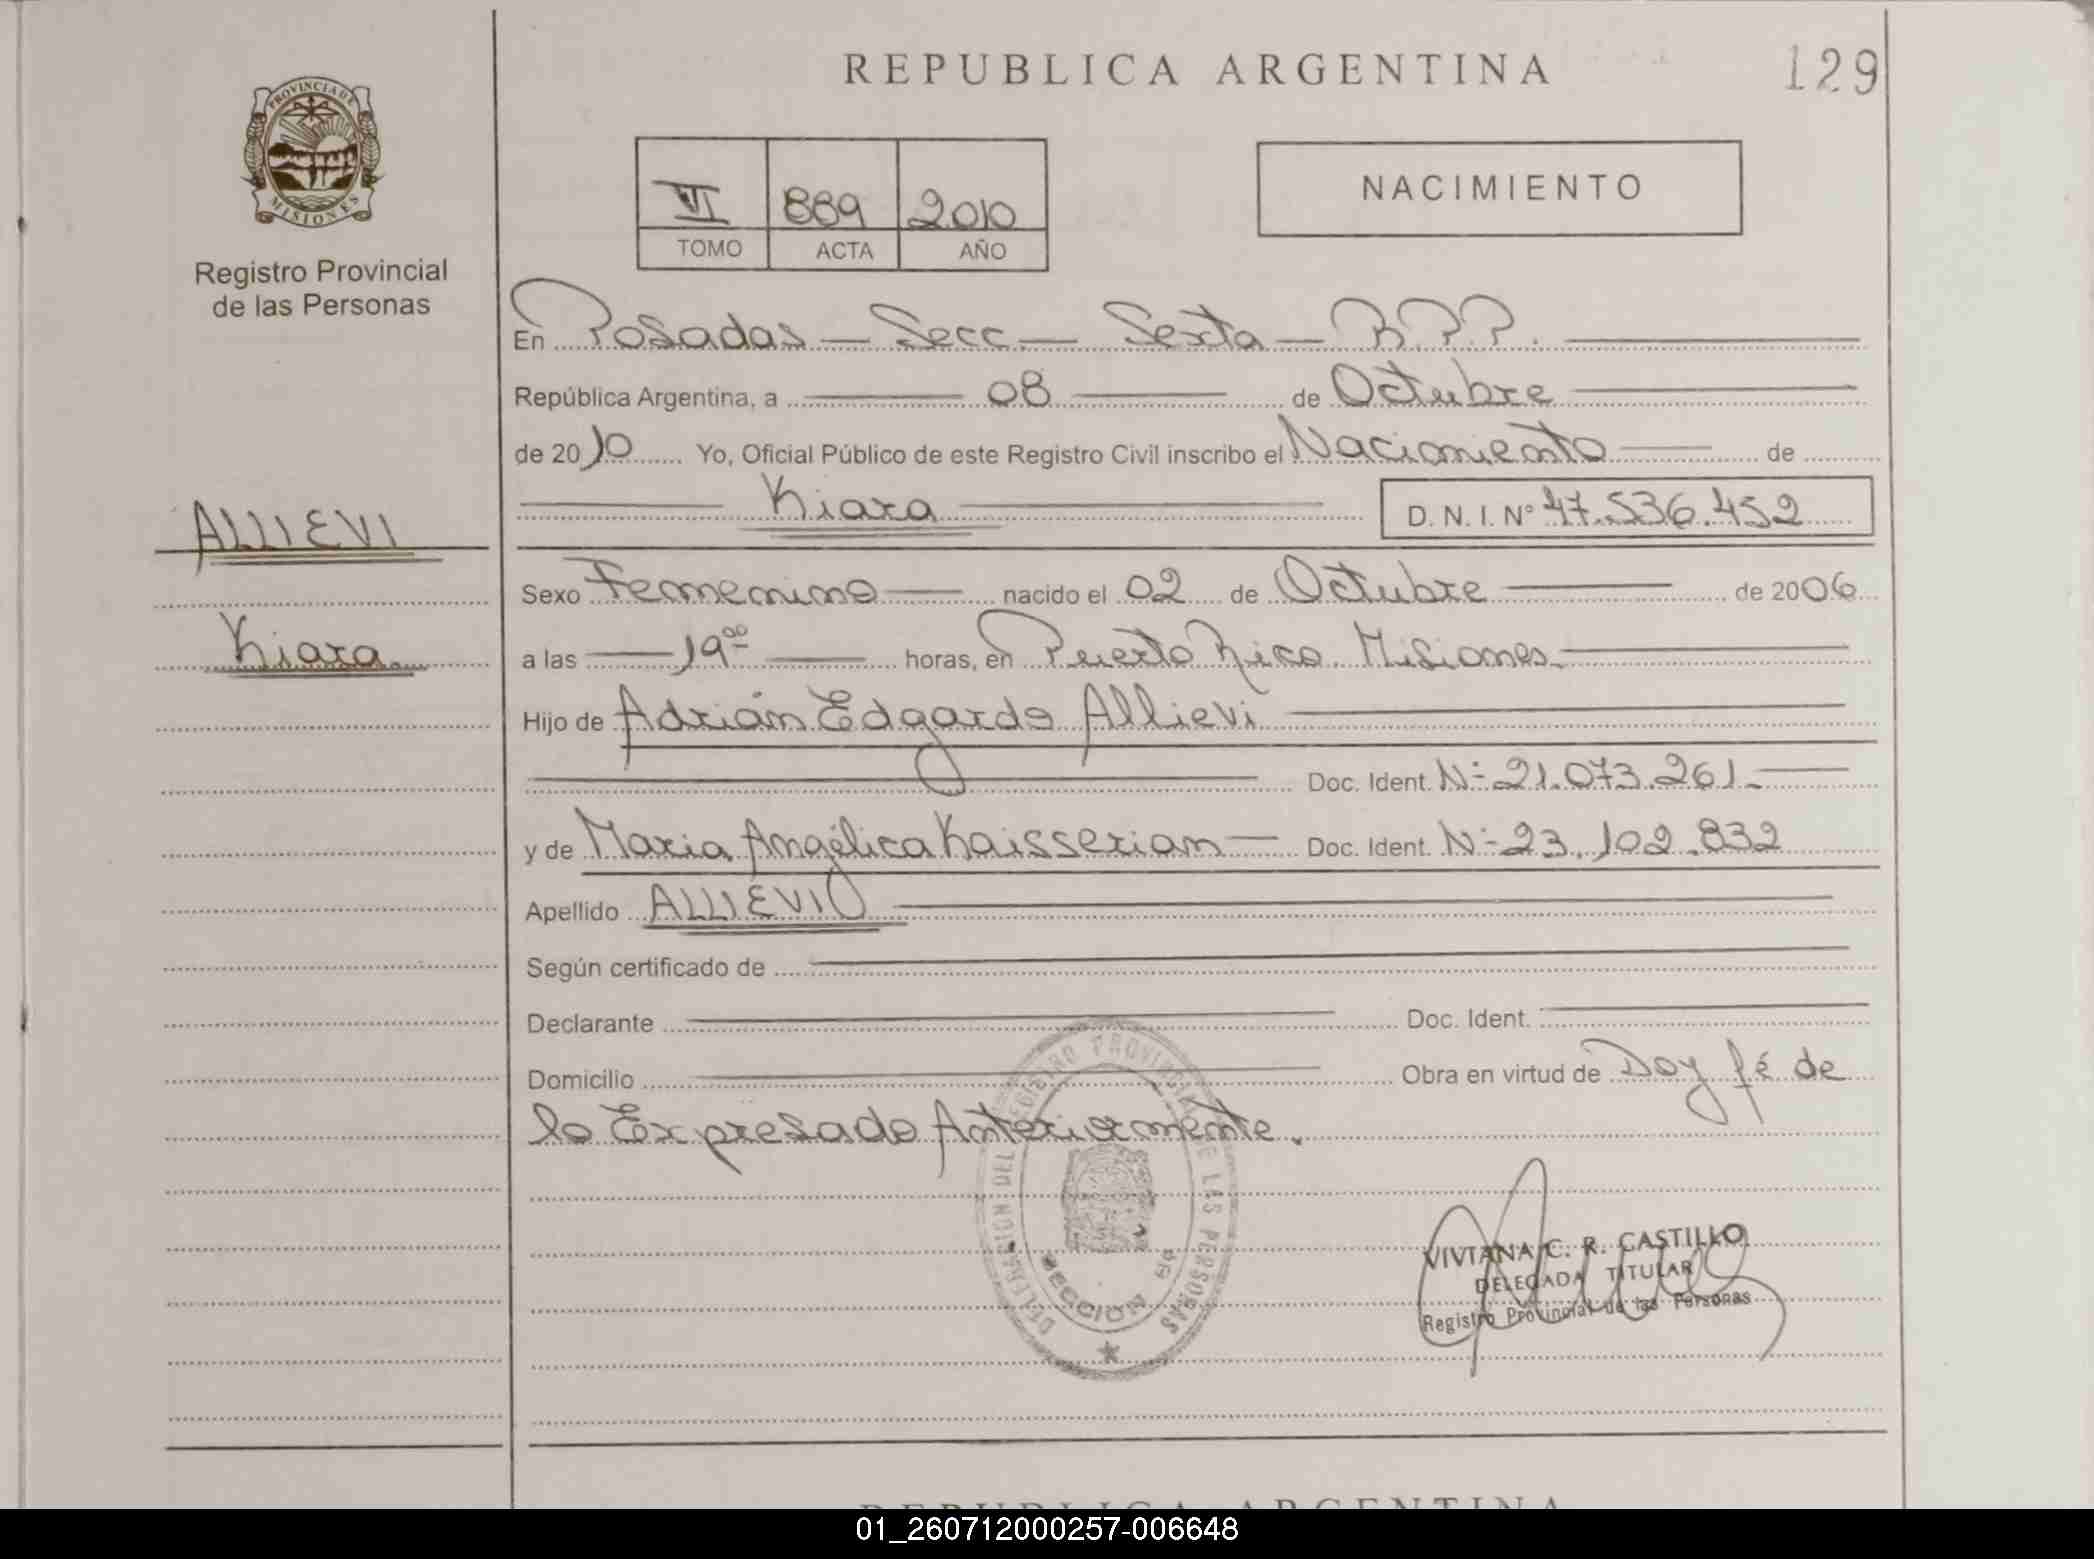 REPUBLICA ARGENTINA
129
PROVINCIA DE
MISIONES
Registro Provincial
de las Personas
VI 889 2010
TOMO ACTA AÑO
NACIMIENTO
En Posadas — Secc — Sexta — R.P.P.
República Argentina, a 08 de Octubre
de 2010 Yo, Oficial Público de este Registro Civil inscribo el Nacimiento de
Kiara D. N. I. Nº 47.536.452
ALLIEVI
Kiara
Sexo Femenino nacido el 02 de Octubre de 2006
a las 19⁰⁰ horas, en Puerto Rico. Misiones.
Hijo de Adrián Edgardo Allievi
Doc. Ident. Nº 21.073.261.
y de Maria Angélica Kaisserian Doc. Ident. Nº 23.102.832
Apellido ALLIEVI
Según certificado de
Declarante Doc. Ident.
Domicilio Obra en virtud de Doy fé de
lo Expresado Anteriormente.
DELEGACION DEL REGISTRO PROVINCIAL DE LAS PERSONAS
SECCION 6ª
VIVIANA C. R. CASTILLO
DELEGADA TITULAR
Registro Provincial de las Personas
REPUBLICA ARGENTINA
01_260712000257-006648